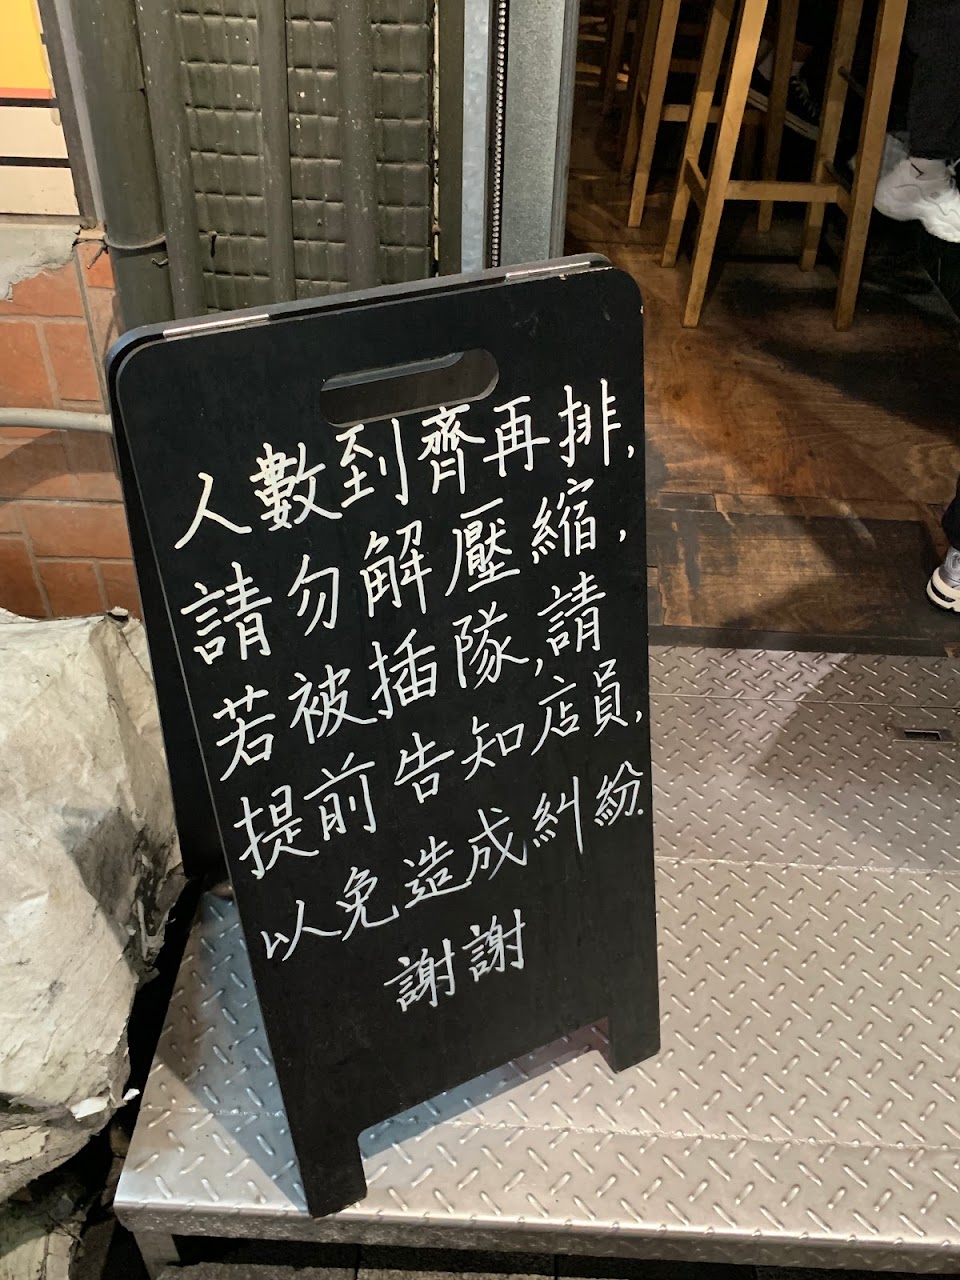 人數到齊再排,
請勿解壓縮,
若被插隊,請
提前告知店員,
以免造成糾紛.
謝謝